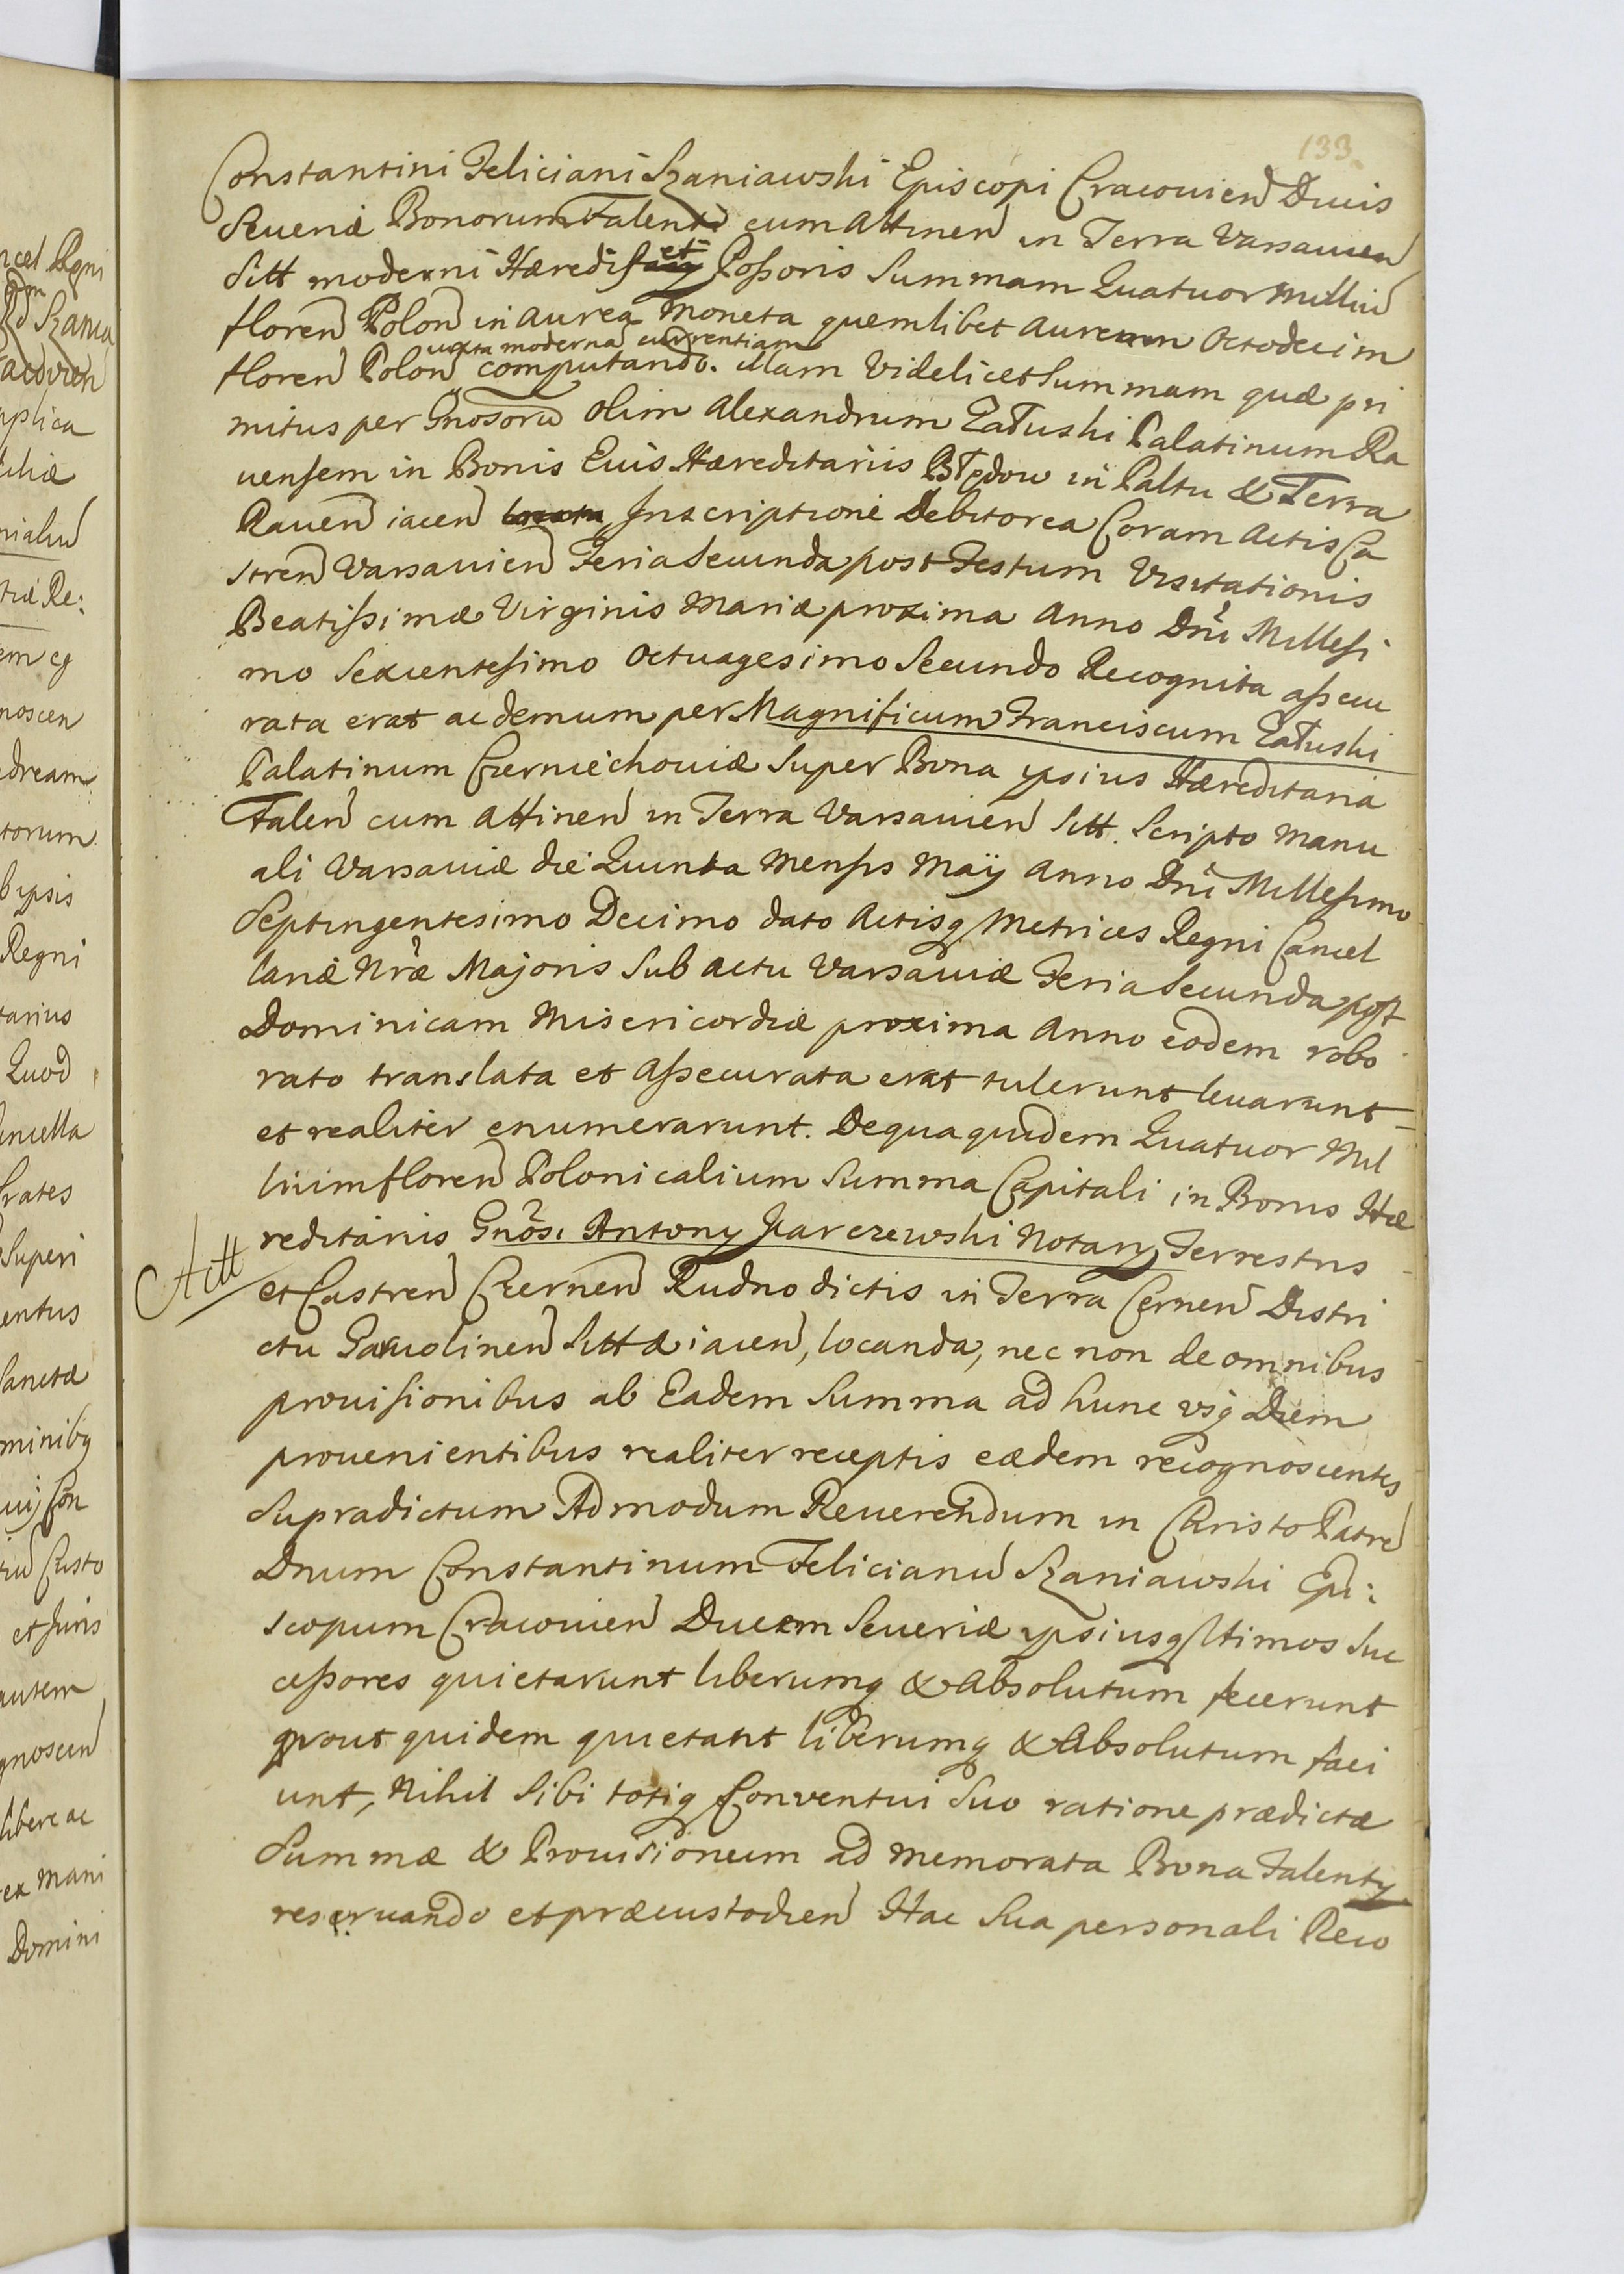 133.
Constantini Feliciani Szaniawski Episcopi Cracovien Ducis
Severiæ Bonorum Falenti cum Attinen in Terra Varsavien
Sitt moderni Hæredis et Possoris Summam Quatuor Milliu
floren Polon in aurea Moneta quemlibet Aureum Octodecim
floren Polon iuxta moderna currentiam computando. illam videlicet Summam quæ pri
mitus per Gnosoru olim Alexandrum Załuski Palatinum Ra
vensem in Bonis Euis Hæreditariis Błędow in Paltu & Terra
Raven iacen Inscriptione Debitorea Coram Actis Ca
stren Varsavien Feria Secunda post Festum Visitationis
Beatissimæ Virginis Mariæ proxima Anno Dni Millesi
mo Sexcentesimo Octuagesimo Secundo Recognita assecu
rata erat ac demum per Magnificum Franciscum Załuski
Palatinum Czerniechoviæ Super Bona ipsius Hæreditaria
Falen cum Attinen in Terra Varsavien Sitt. Scripto Manu
ali Varsaviæ die Quinta Mensis Maÿ Anno Dni Millesimo
Septingentesimo Decimo dato Actisq Metrices Regni Cancel
lariæ Nræ Majoris Sub actu Varsaviæ Feria Secunda post
Dominicam Misericordiæ proxima Anno eodem robo
rato translata et Assecurata erat tulerunt levarunt
et realiter enumerarunt. De qua quidem Quatuor Mil
lium floren Polonicalium Summa Capitali in Bonis Hæ
reditariis Gnosi Antony Karczewski Notary Terrestris
Actt
et Castren Czernen Rudno dictis in Terra Cernen Distri
ctu Garwolinen Sitt & iacen, locanda, nec non de omnibus
provisionibus ab Eadem Summa ad hunc usq Diem
provenientibus realiter receptis eædem recognoscentes
Supradictum Admodum Reverendum in Christo Patre
Dnum Constantinum Felicianu Szaniawski Epi:
scopum Cracovien Ducem Severiæ ipsiusq ltimos Suc
cessores quietarunt liberumq & Absolutum fecerunt
prout quidem quietant liberumq & Absolutum faci
unt, Nihil Sibi totiq Conventui Suo ratione prædictæ
Summæ & Provisioneum ad memorata Bona Falenty
reservando et præcustodien Hac Sua personali Reco